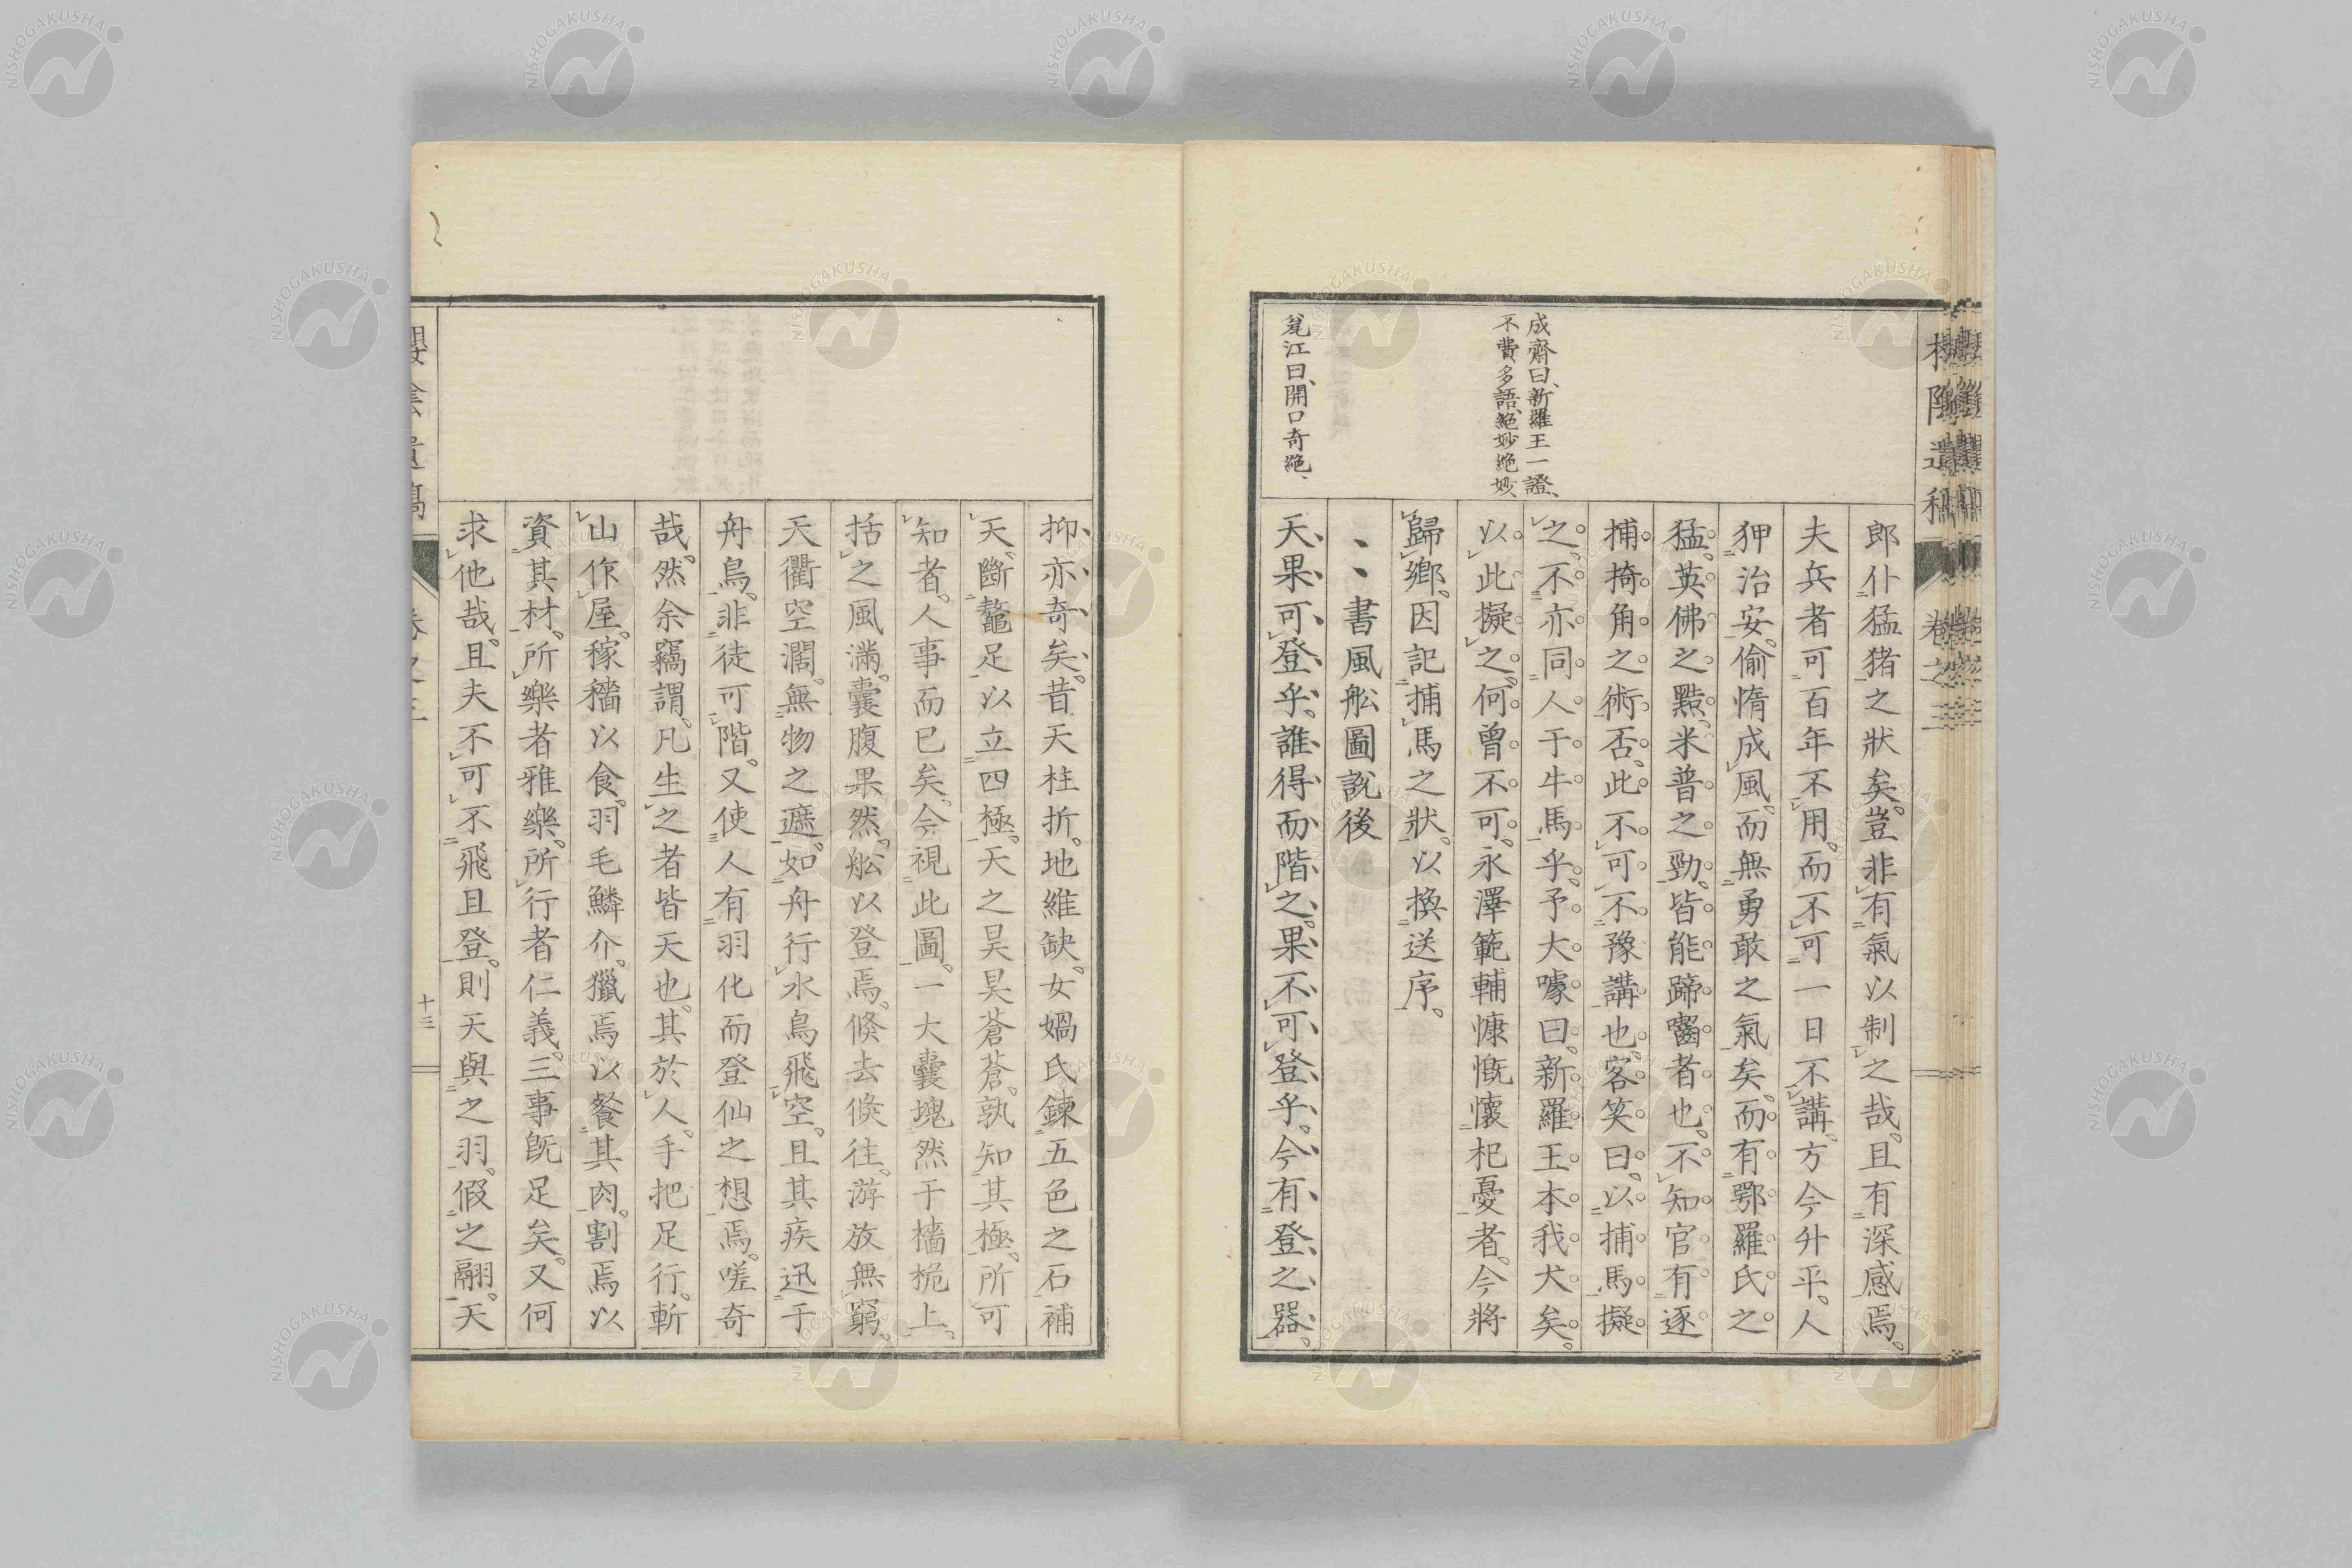 成齋曰、新羅王一證、
不費多語、絕妙絕妙、
瓮江曰、開口奇絕、
郎仆猛猪之狀矣。豈非有氣以制之哉。且有深感焉。
夫兵者可百年不用。而不可一日不講。方今升平。人
狎治安。偷惰成風。而無勇敢之氣矣。而有鄂羅氏之
猛。英佛之黠。米普之勁。皆能蹄嚙者也。不知官有逐
捕掎角之術否。此不可不豫講也。客笑曰。以捕馬擬
之。不亦同人于牛馬乎。予大噱曰。新羅王本我犬矣。
以此擬之。何曾不可。永澤範輔慷慨懷杞憂者。今將
歸鄉。因記捕馬之狀。以換送序。
書風舩圖說後
天果可登乎。誰得而階之。果不可登乎。今有登之器。
抑亦奇矣。昔天柱折。地維缺。女媧氏鍊五色之石補
天。斷鼇足以立四極。天之昊昊蒼蒼。孰知其極。所可
知者。人事而已矣。今視此圖。一大囊塊然于檣桅上。
括之風滿。囊腹果然。舩以登焉。倏去倏往。游放無窮。
天衢空濶。無物之遮。如舟行水鳥飛空。且其疾迅于
舟鳥。非徒可階。又使人有羽化而登仙之想焉。嗟奇
哉。然余竊謂。凡生之者皆天也。其於人。手把足行。斬
山作屋。稼穡以食。羽毛鱗介。獵焉以餐其肉。割焉以
資其材。所樂者雅樂。所行者仁義。三事既足矣。又何
求他哉。且夫不可不飛且登。則天與之羽。假之翮。天
十三
NISHOGAKUSHA